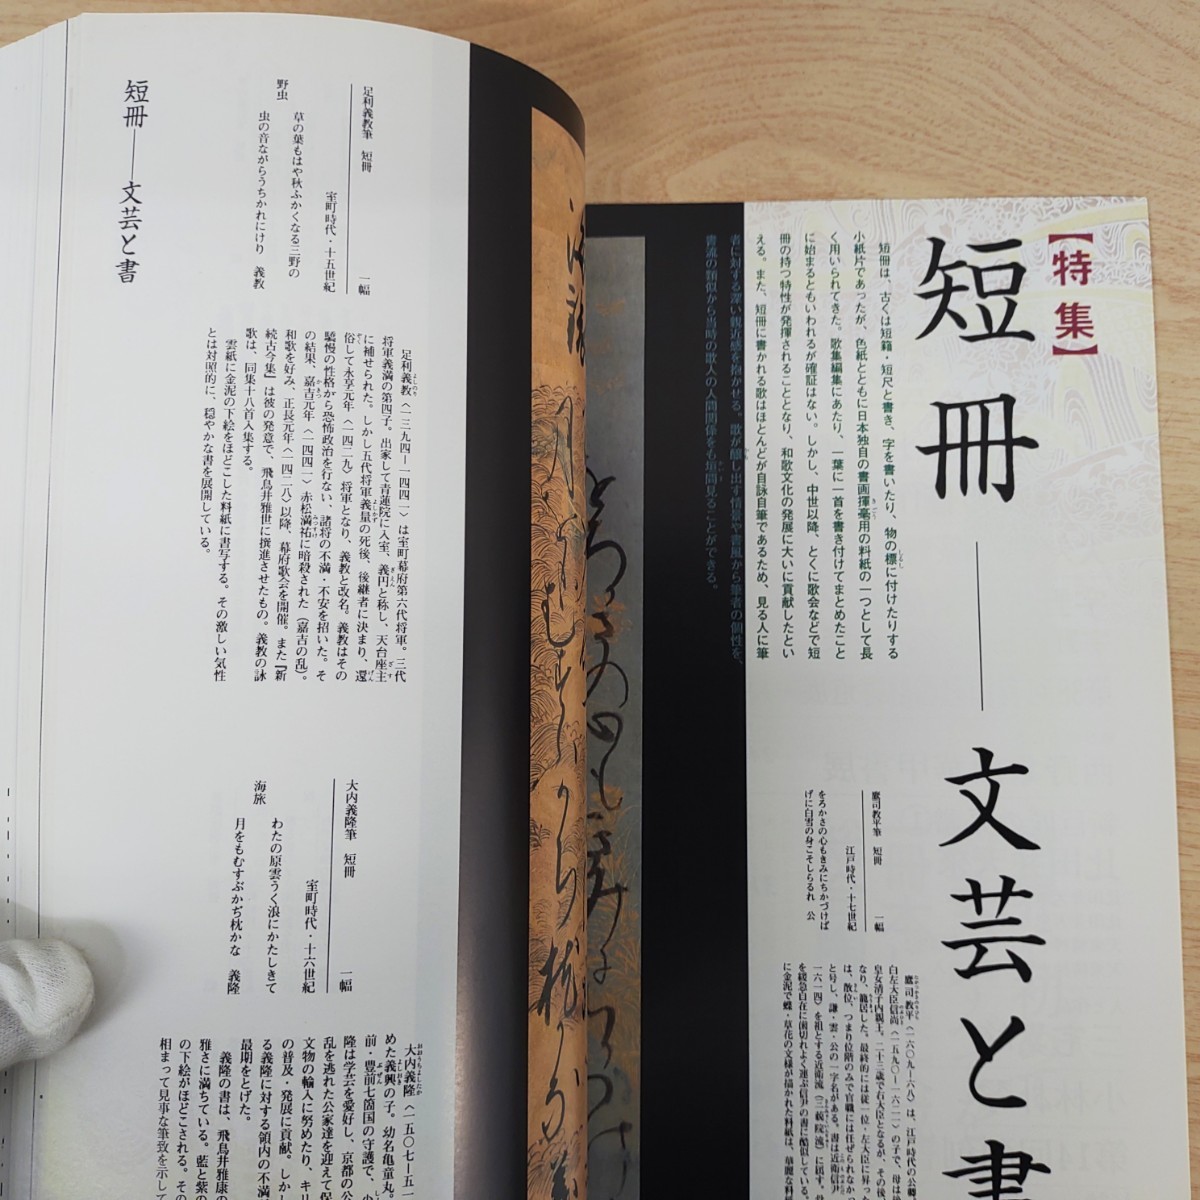 【特集】
短冊――文芸と書
短冊は、古くは短籍・短尺と書き、字を書いたり、物の標に付けたりする
小紙片であったが、色紙とともに日本独自の書画揮毫用の料紙の一つとして長
く用いられてきた。歌集編集にあたり、一葉に一首を書き付けてまとめたこと
に始まるともいわれるが確証はない。しかし、中世以降、とくに歌会などで短
冊の持つ特性が発揮されることとなり、和歌文化の発展に大いに貢献したとい
える。また、短冊に書かれる歌はほとんどが自詠自筆であるため、見る人に筆
者に対する深い親近感を抱かせる。歌が醸し出す情景や書風から筆者の個性を、
書流の類似から当時の歌人の人間関係をも垣間見ることができる。
鷹司教平筆 短冊 一幅
江戸時代・十七世紀
をろかさの心もきみにちかづけば
げに白雪の身こそしらるれ 公
鷹司教平〈一六〇九―六八〉は、江戸時代の公卿
白左大臣信尚〈一五九〇―一六二一〉の子で、母は後
皇女清子内親王。二十三歳で右大臣となるが、その後
なり、籠居した。最終的には従一位・左大臣に昇った
は、散位、つまり位階のみで官職には任ぜられなか
と号し、謙・雲・公の一字名がある。書は近衛信尹
一六一四〉を祖とする近衛流(三藐院流)に属す。
を緩急自在に歯切れよく運ぶ信尹の書に酷似している。
に金泥で蝶・草花の文様が描かれた料紙は、華麗な料
足利義教筆 短冊 一幅
室町時代・十五世紀
野虫
草の葉もはや秋ふかくなる三野の
虫の音ながらうちかれにけり 義教
足利義教〈一三九四―一四四一〉は室町幕府第六代将軍。三代
将軍義満の第四子。出家して青蓮院に入室、義円と称し、天台座主
に補せられた。しかし五代将軍義量の死後、後継者に決まり、還
俗して永享元年〈一四二九〉将軍となり、義教と改名。義教はその
驕慢の性格から恐怖政治を行ない、諸将の不満・不安を招いた。そ
の結果、嘉吉元年〈一四四一〉赤松満祐に暗殺された(嘉吉の乱)。
和歌を好み、正長元年〈一四二八〉以降、幕府歌会を開催。また『新
続古今集』は彼の発意で、飛鳥井雅世に撰進させたもの。義教の詠
歌は、同集十八首入集する。
雲紙に金泥の下絵をほどこした料紙に書写する。その激しい気性
とは対照的に、穏やかな書を展開している。
大内義隆筆 短冊 一幅
室町時代・十六世紀
海旅
わたの原雲うく浪にかたしきて
月をもむすぶかぢ枕かな 義隆
大内義隆〈一五〇七―五一
めた義興の子。幼名亀童丸。
前・豊前七箇国の守護で、
隆は学芸を愛好し、京都の公
乱を逃れた公家達を迎えて保
文物の輸入に努めたり、キリ
の普及・発展に貢献。しかし
る義隆に対する領内の不満
最期をとげた。
義隆の書は、飛鳥井雅康の
雅さに満ちている。藍と紫の
の下絵がほどこされる。その
相まって見事な筆致を示して
短冊――文芸と書